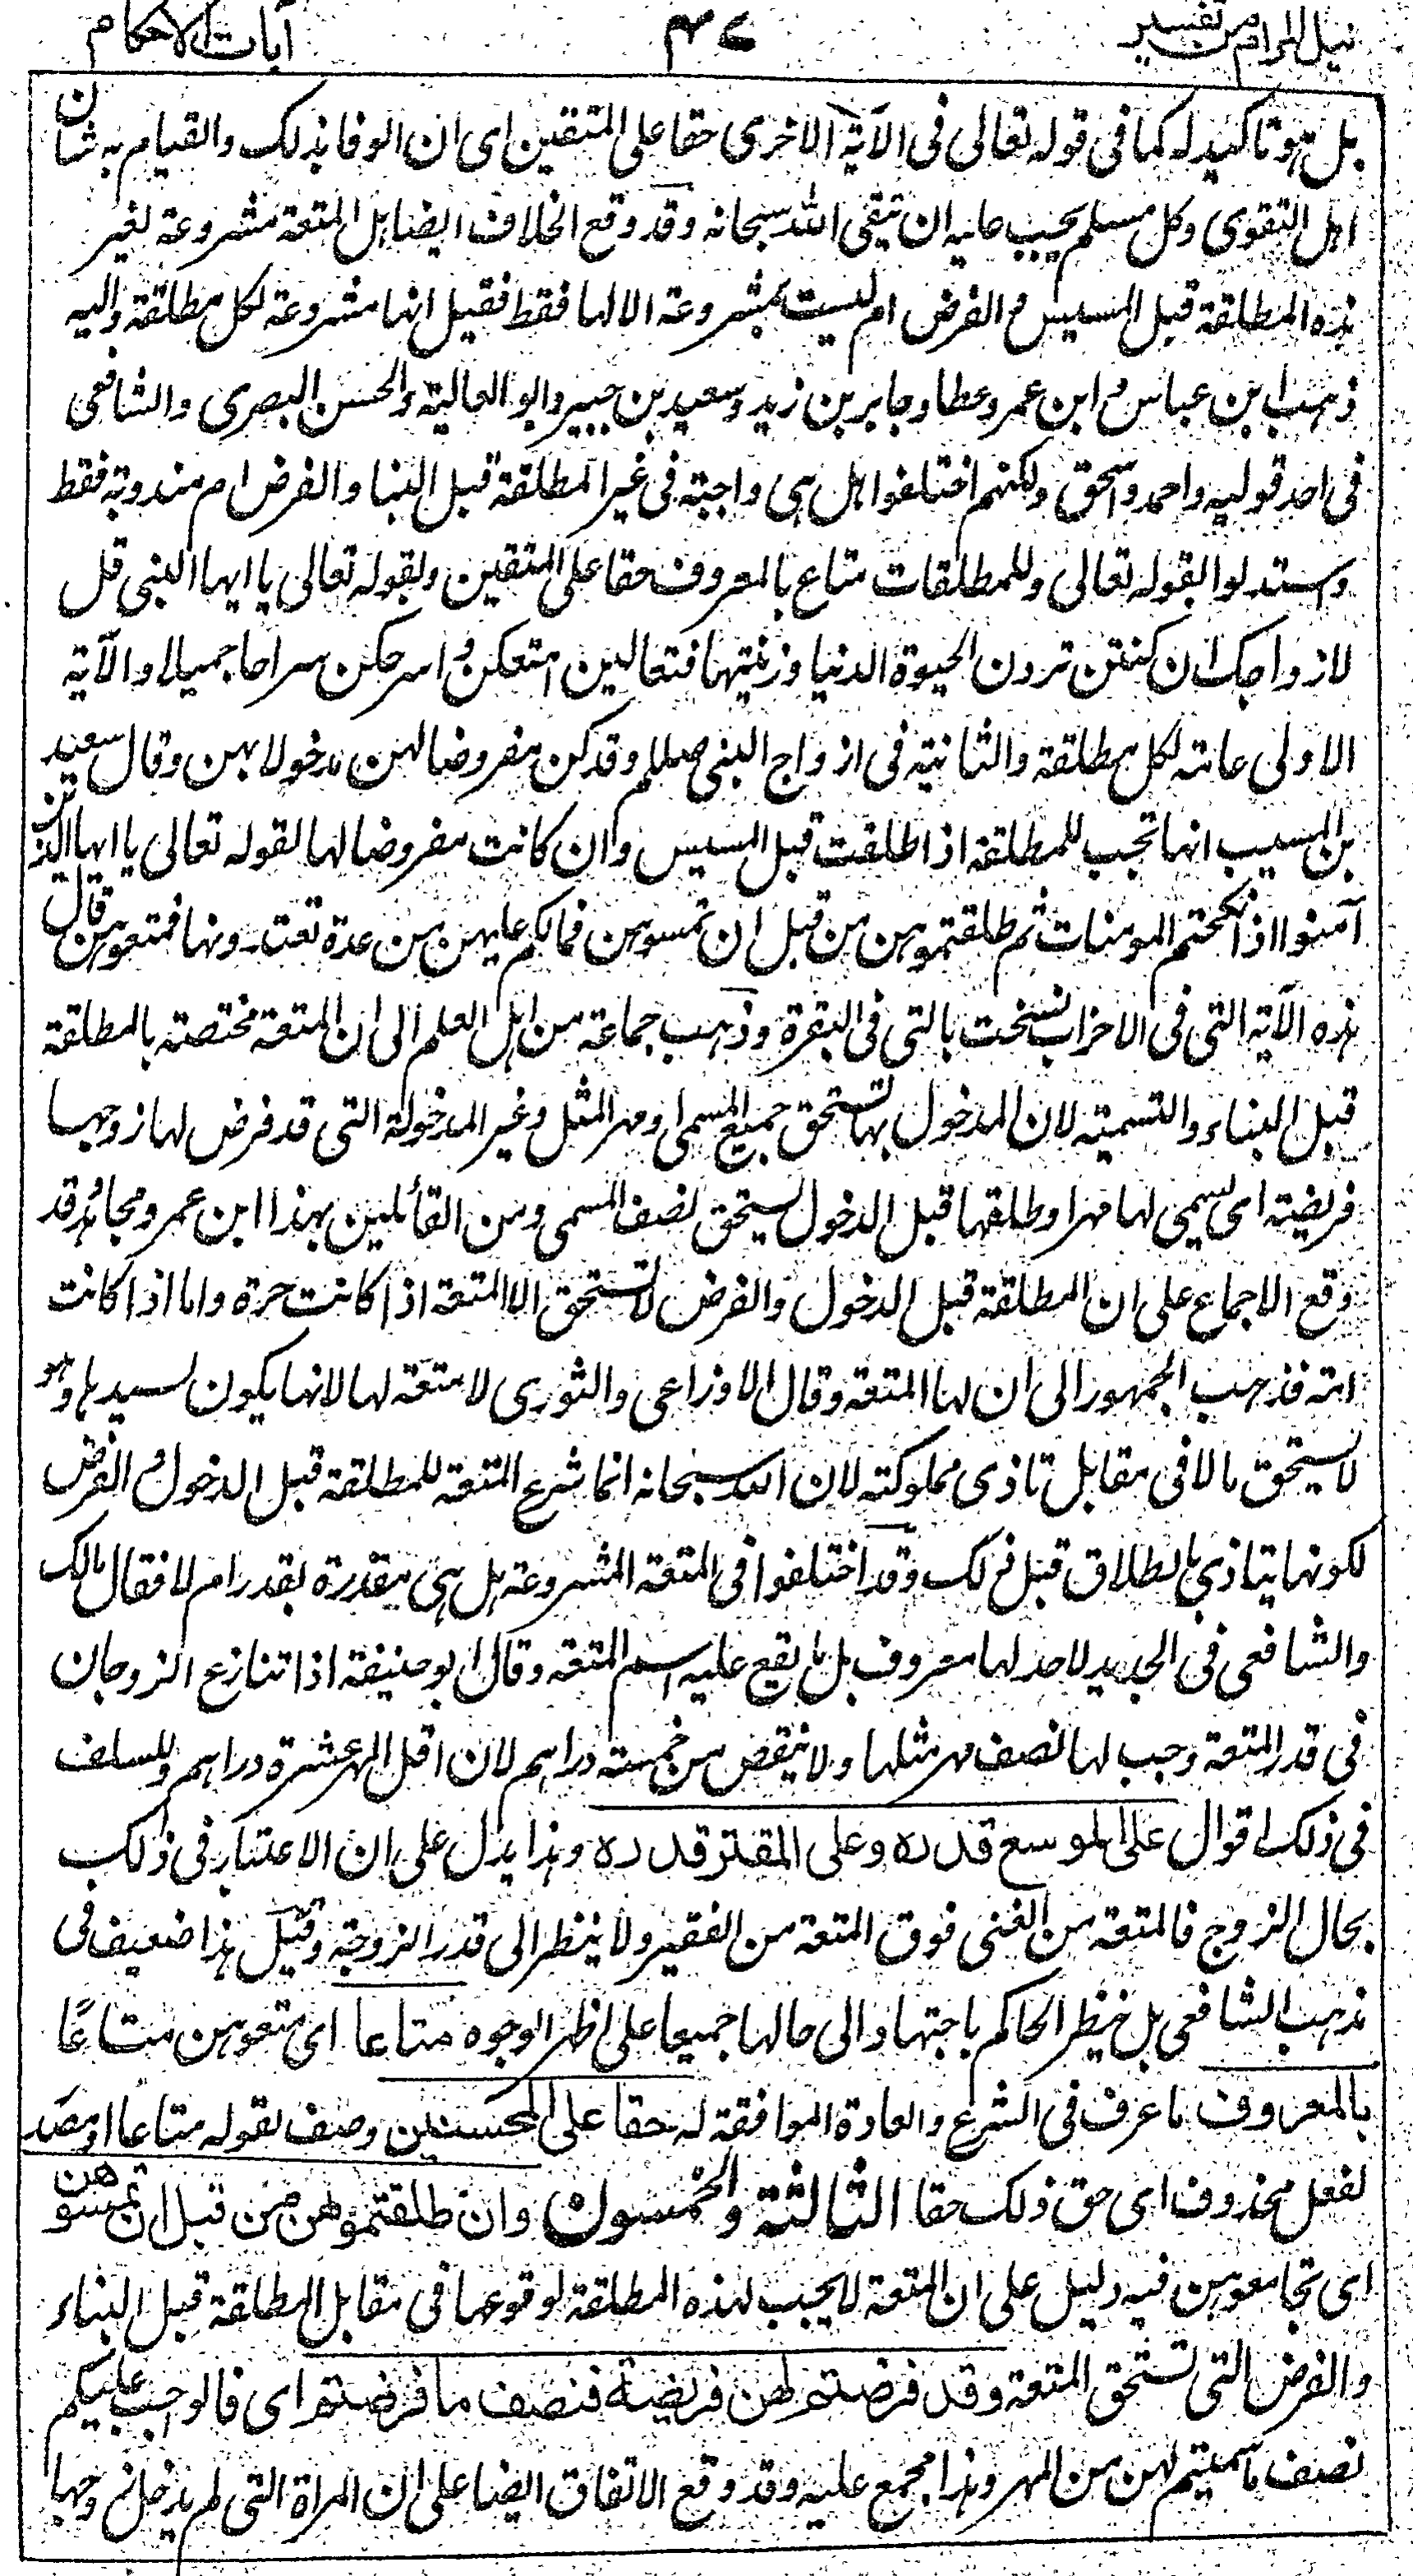 نيل المرام من تفسير ٧٤ آيات الاحكام
بل هو تاكيد له كما في قوله تعالى في الآية الاخرى حقا على المتقين اى ان الوفا بذلك والقيام به شان
اهل التقوى وكل مسلم يجب عليه ان يتقى الله سبحانه وقد وقع الخلاف ايضا هل المتعة مشروعة لغير
هذه المطلقة قبل المسيس والفرض ام ليست بمشروعة الا لها فقط فقيل انها مشروعة لكل مطلقة واليه
ذهب ابن عباس وابن عمر وعطا وجابر بن زيد وسعيد بن جبير وابو العالية والحسن البصرى والشافعى
فى احد قوليه واحمد واسحق ولكنهم اختلفوا هل هى واجبة فى غير المطلقة قبل البنا والفرض ام مندوبة فقط
واستدلوا بقوله تعالى وللمطلقات متاع بالمعروف حقا على المتقين وبقوله تعالى يا ايها النبى قل
لازواجك ان كنتن تردن الحيوة الدنيا وزينتها فتعالين امتعكن واسرحكن سراحا جميلا والآية
الاولى عامة لكل مطلقة والثانية فى ازواج النبى صللم وقد كن مفروضا لهن مدخولا بهن وقال سعيد
بن المسيب انها تجب للمطلقة اذا طلقت قبل المسيس وان كانت مفروضا لها لقوله تعالى يا ايها الذين
آمنوا اذا نكحتم المومنات ثم طلقتموهن من قبل ان تمسوهن فمالكم عليهن من عدة تعتدونها فمتعوهن قال
هذه الآية التى فى الاحزاب نسخت بالتى فى البقرة وذهب جماعة من اهل العلم الى ان المتعة مختصة بالمطلقة
قبل البناء والتسمية لان المدخول بها تستحق جميع المسمى او مهر المثل وغير المدخولة التى قد فرض لها زوجها
فريضة اى سمى لها مهرا وطلقها قبل الدخول يستحق نصف المسمى ومن القائلين بهذا ابن عمر ومجاهد وقد
وقع الاجماع على ان المطلقة قبل الدخول والفرض لا تستحق الا المتعة اذا كانت حرة واما اذا كانت
امة فذهب الجمهور الى ان لها المتعة وقال الاوزاعى والثورى لا متعة لها لانها يكون لسيدها وهو
لا يستحق مالا فى مقابل تاذى مملوكته لان الله سبحانه انما شرع المتعة للمطلقة قبل الدخول والفرض
لكونها يتاذى بالطلاق قبل ذلك وقد اختلفوا فى المتعة المشروعة هل هى مقدرة بقدر ام لا فقال مالك
والشافعى فى الجديد لا حد لها معروف بل ما يقع عليه اسم المتعة وقال ابو حنيفة اذا تنازع الزوجان
فى قدر المتعة وجب لها نصف مهر مثلها ولا ينقص من خمسة دراهم لان اقل المهر عشرة دراهم وللسلف
فى ذلك اقوال على الموسع قدره وعلى المقتر قدره وهذا يدل على ان الاعتبار فى ذلك
بحال الزوج فالمتعة من الغنى فوق المتعة من الفقير ولا ينظر الى قدر الزوجة وقيل هذا ضعيف فى
مذهب الشافعى بل ينظر الحاكم باجتهاده الى حالها جميعا على اظهر الوجوه متاعا اى متعوهن متاعًا
بالمعروف ما عرف فى الشرع والعادة الموافقة له حقا على المحسنين وصف لقوله متاعا او مصدر
لفعل محذوف اى حق ذلك حقا الثالثة والخمسون وان طلقتموهن من قبل ان تمسوهن
اى تجامعوهن فيه دليل على ان المتعة لا يجب لهذه المطلقة لوقوعها فى مقابل المطلقة قبل البناء
والفرض التى تستحق المتعة وقد فرضتم لهن فريضة فنصف ما فرضتم اى فالواجب عليكم
نصف ما سميتم لهن من المهر وهذا مجمع عليه وقد وقع الاتفاق ايضا على ان المراة التى لم يدخل زوجها